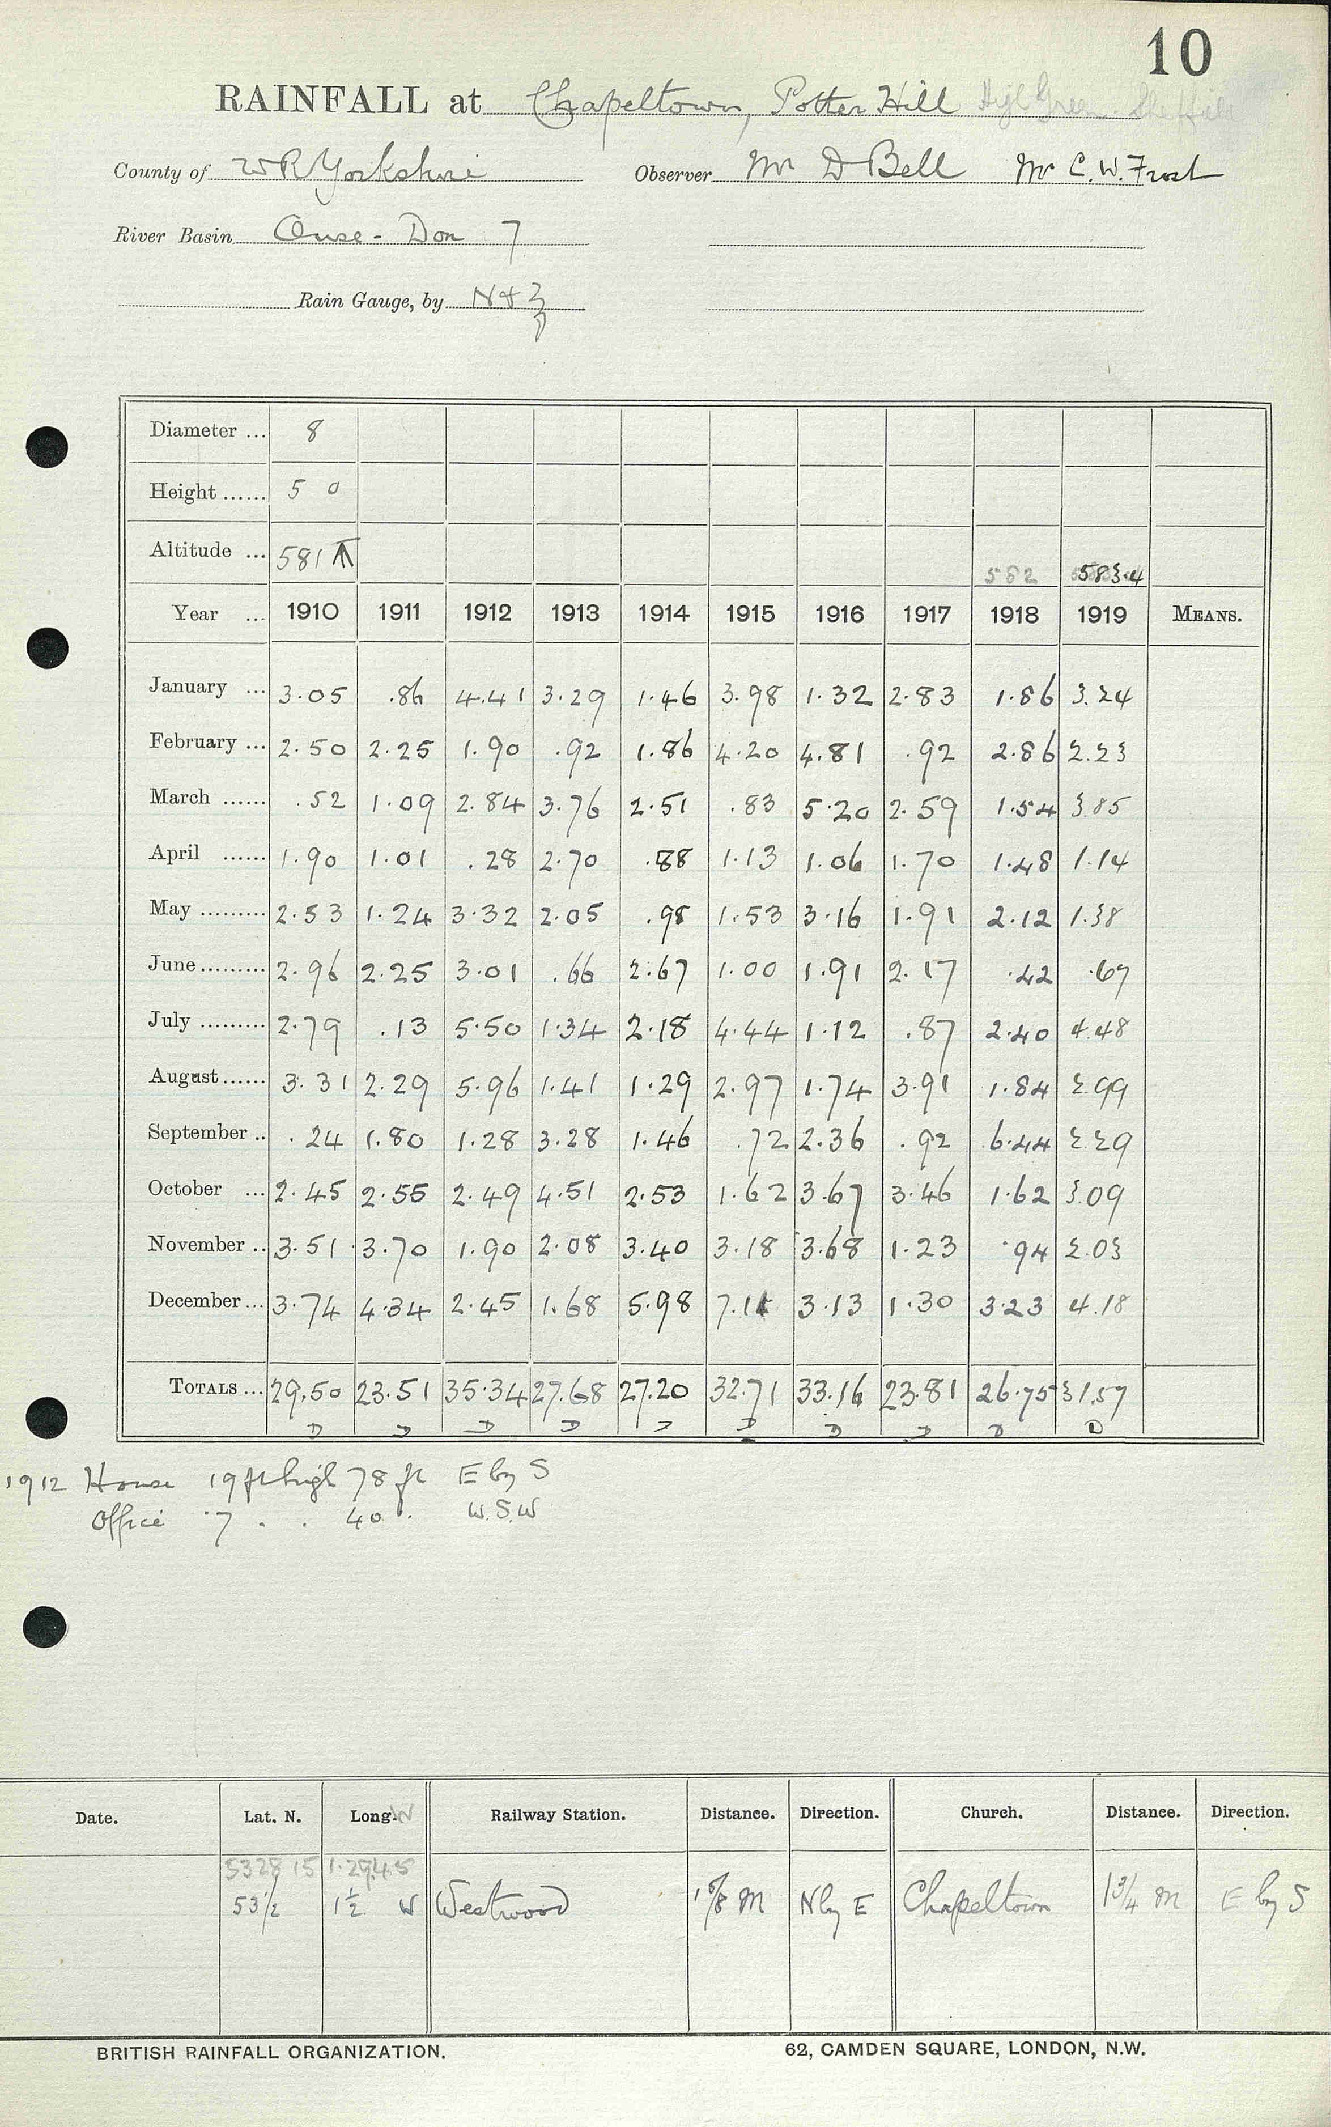 10
RAINFALL at Chapeltown, Potter Hill High Green Sheffield
County of W R Yorkshire Observer Mr D Bell Mr C. W. Frost
River Basin Ouse - Don 7
Rain Gauge, by N & Z
Diameter ... 8
Height ...... 5 0
Altitude ... 581 582 583.4
Year ... 1910 1911 1912 1913 1914 1915 1916 1917 1918 1919 MEANS.
January ... 3.05 .86 4.41 3.29 1.46 3.98 1.32 2.83 1.86 3.24
February ... 2.50 2.25 1.90 .92 1.86 4.20 4.81 .92 2.86 2.23
March ...... .52 1.09 2.84 3.76 2.51 .83 5.20 2.59 1.54 3.85
April ...... 1.90 1.01 .28 2.70 .88 1.13 1.06 1.70 1.48 1.14
May ......... 2.53 1.24 3.32 2.05 .98 1.53 3.16 1.91 2.12 1.38
June ......... 2.96 2.25 3.01 .66 2.67 1.00 1.91 2.17 .42 .67
July ......... 2.79 .13 5.50 1.34 2.18 4.44 1.12 .87 2.40 4.48
August ...... 3.31 2.29 5.96 1.41 1.29 2.97 1.74 3.91 1.84 2.99
September .. .24 1.80 1.28 3.28 1.46 .72 2.36 .92 6.44 2.29
October ... 2.45 2.55 2.49 4.51 2.53 1.62 3.67 3.46 1.62 3.09
November .. 3.51 3.70 1.90 2.08 3.40 3.18 3.68 1.23 .94 2.03
December ... 3.74 4.34 2.45 1.68 5.98 7.11 3.13 1.30 3.23 4.18
TOTALS ... 29.50 23.51 35.34 27.68 27.20 32.71 33.16 23.81 26.75 31.57
D D D D D D D D D D
1912 House 19 ft high 78 ft E by S
Office 7 . . 40 . W.S.W
Date. Lat. N. Long. W Railway Station. Distance. Direction. Church. Distance. Direction.
53 28 15 1.29.45
53 1/2 1 1/2 W Westwood 1 5/8 M N by E Chapeltown 1 3/4 M E by S
BRITISH RAINFALL ORGANIZATION. 62, CAMDEN SQUARE, LONDON, N.W.